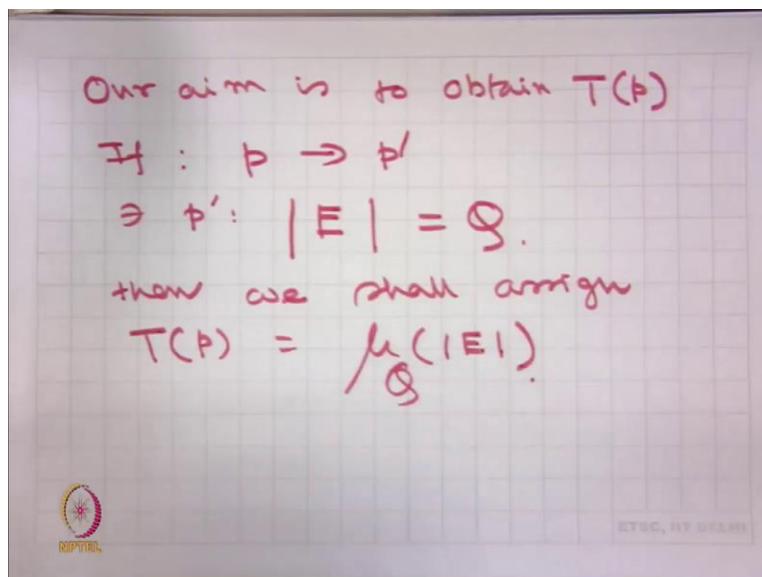 Our aim is to obtain T(p)
If : p → p'
∋ p' : |E| = Q.
then we shall assign
T(p) = μ_Q(|E|).
NPTEL
ETSC, IIT DELHI